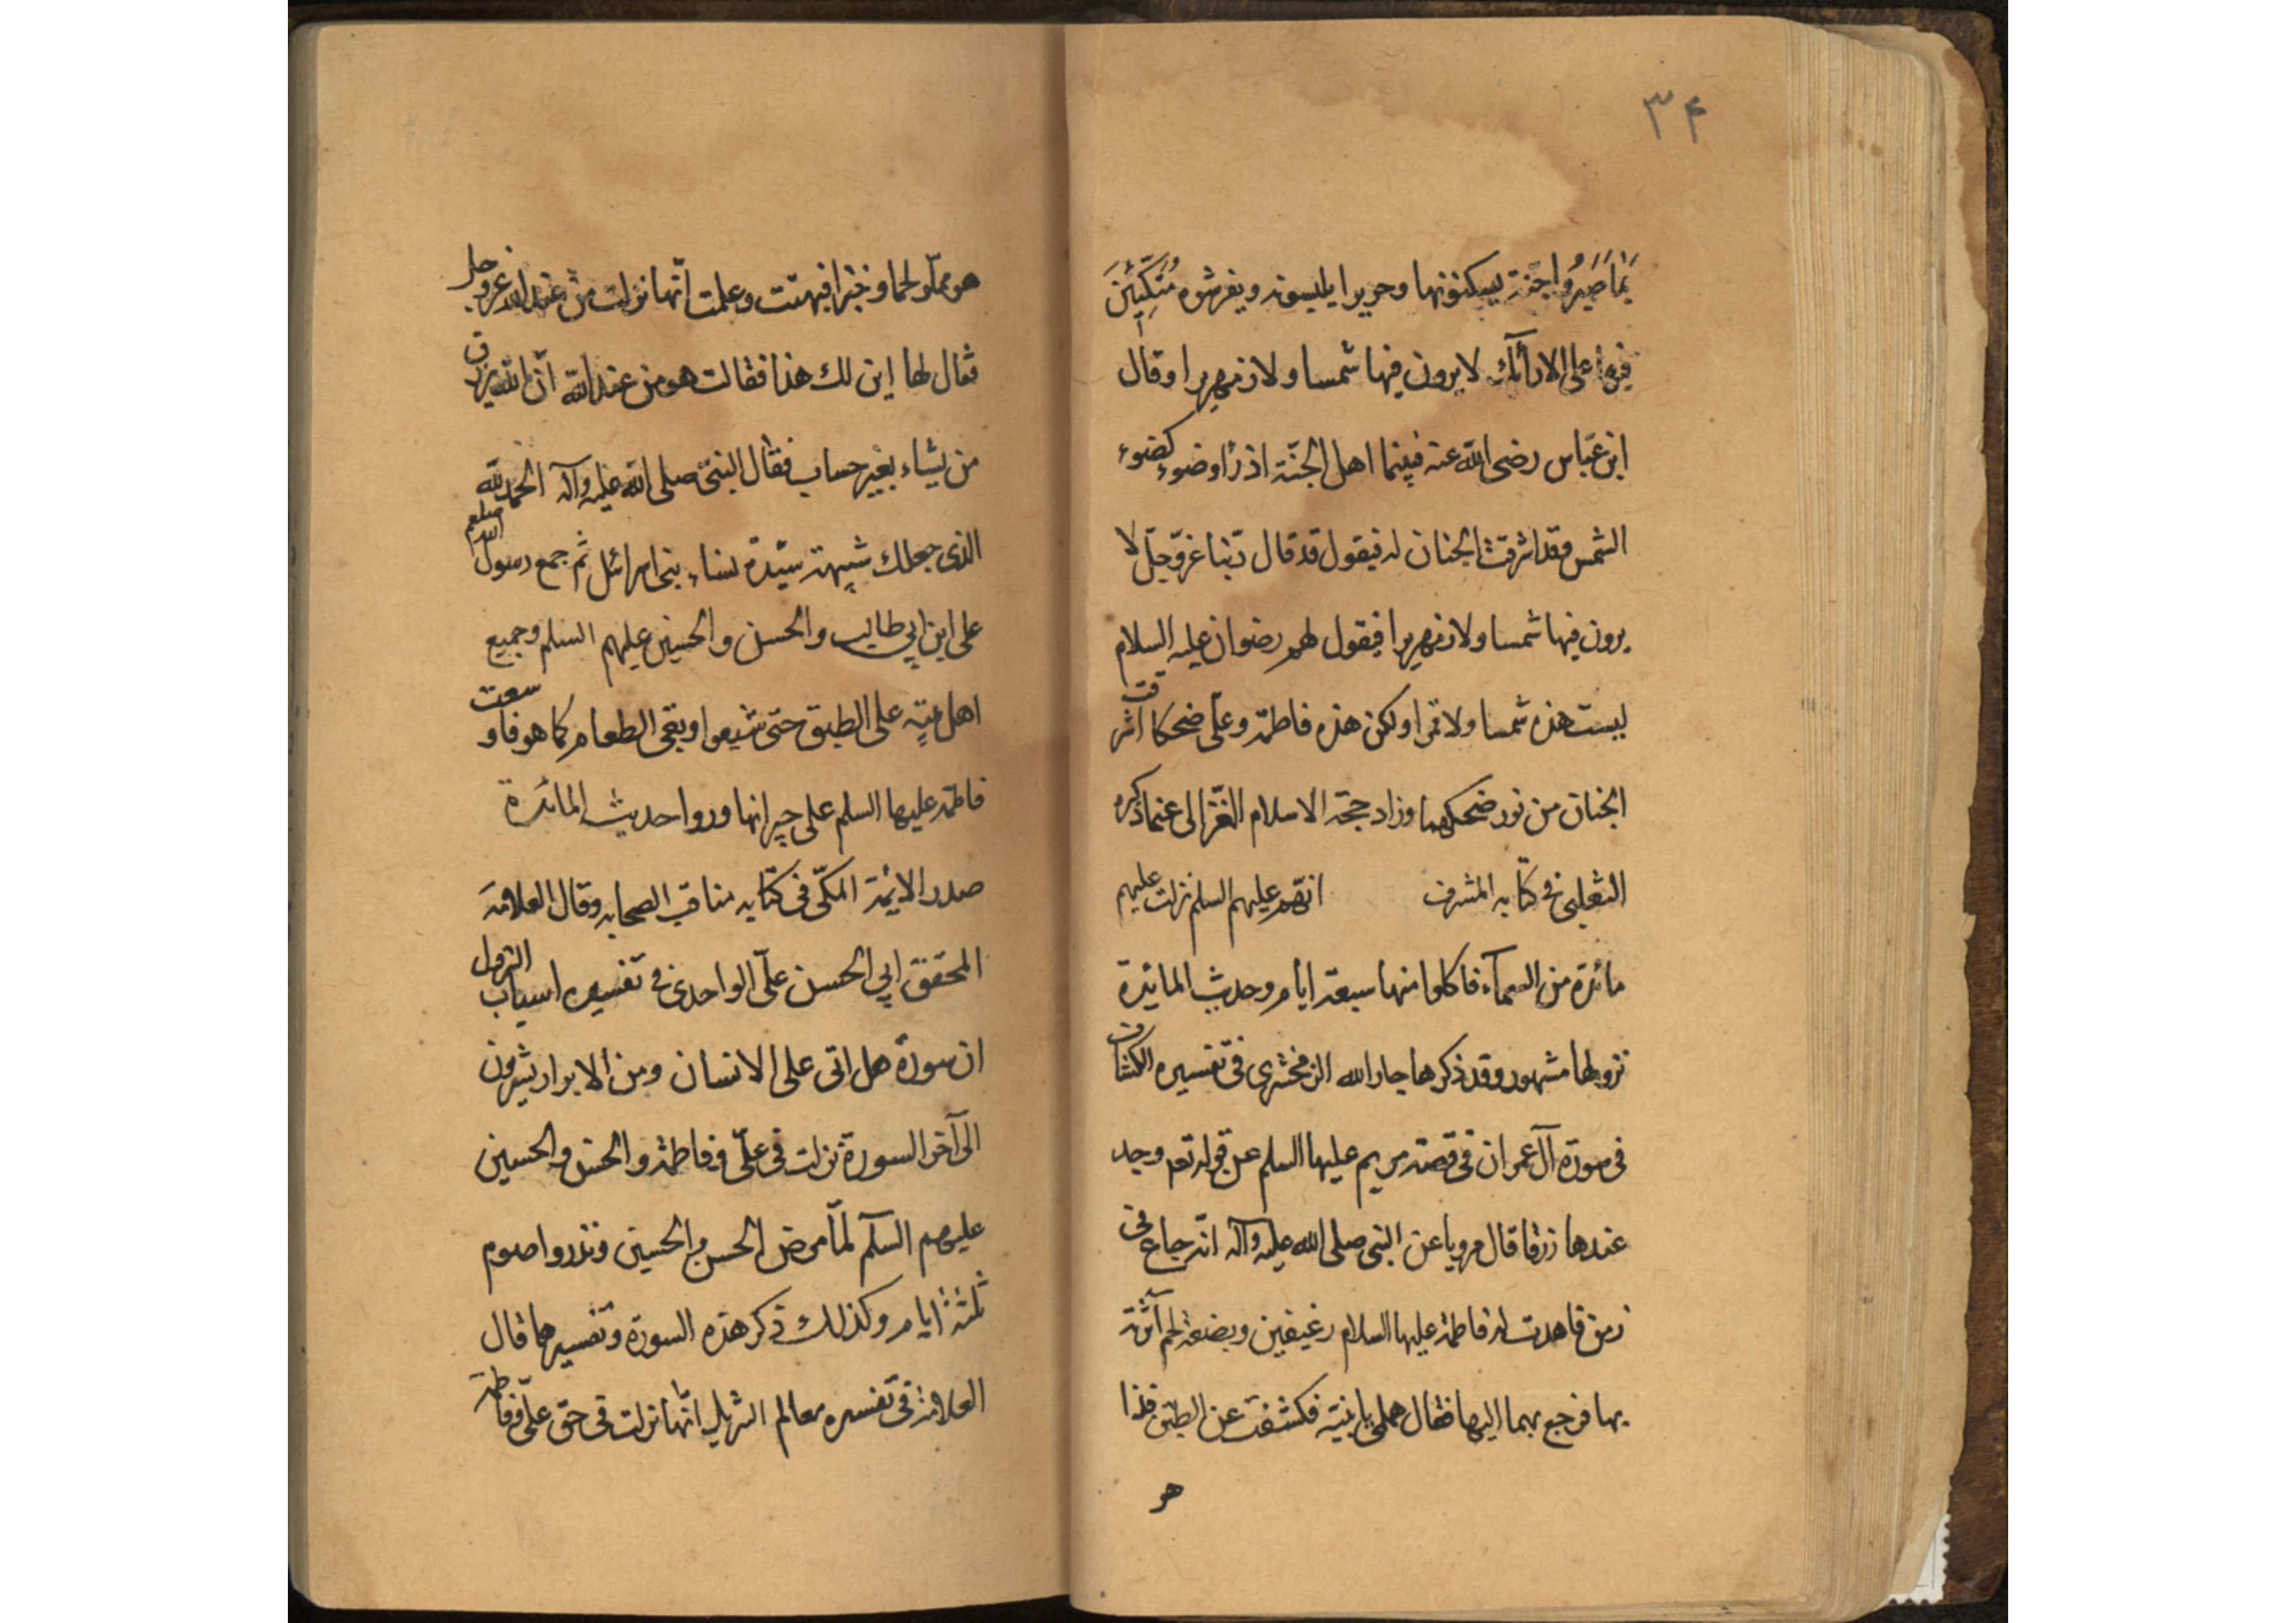 ۳۴
بِمَا صَبَرُوا جنة يسكنونها وحريرا يلبسونه ويفرشوه مُتَّكِئِينَ
فيها على الارآئك لا يرون فيها شمسا ولا زمهريرا وقال
ابن عبّاس رضى الله عنه فبينما اهل الجنّة اذ رأوا ضوء كضوء
الشمس وقد اشرقت الجنان له فيقول قد قال ربّنا عزّ وجلّ لا
يرون فيها شمسا ولا زمهريرا فيقول لهم رضوان عليه السلام
ليست هذه شمسا ولا قمرا ولكن هذه فاطمة وعلّى ضحكا اشرقت
الجنان من نور ضحكهما وزاد حجة الاسلام الغزّالى عما ذكره
الثعلبى فى كتابه المشرف انهم عليهم السلم نزلت عليهم
مائدة من السمآء فاكلوا منها سبعة ايام وحديث المايدة
نزولها مشهور وقد ذكرها جار الله الزمخشرى فى تفسيره الكشاف
فى سورة آل عمران فى قصة مريم عليها السلم عن قوله تعم وجد
عندها رزقا قال مرويا عن النبى صلى الله عليه وآله انّه جاع فى
زمن فاهدت له فاطمة عليها السلام رغيفين وبضعة لحم آثرته
بها فرجع بهما اليها فقال هلمى يا بنية فكشفت عن الطبق فاذا
هو
هو مملّو لحما وخبزا فبهتت وعلمت انّها نزلت من عند الله عزوجل
فقال لها اين لك هذا فقالت هو من عند الله انّ الله يرزق
من يشاء بغير حساب فقال النبىّ صلى الله عليه وآله الحمد لله
الذى جعلك شبيهة سيّدة نساء بنى اسرائل ثم جمع رسول الله صلعم
على ابن ابى طالب والحسن والحسين عليهم السلم وجميع
اهل بيته على الطبق حتى شبعوا وبقى الطعام كما هو فاوسعت
فاطمة عليها السلم على جيرانها وروا حديث المائدة
صدر الايمة المكّى فى كتابه مناقب الصحابه وقال العلامة
المحقق ابى الحسن علّى الواحدى فى تفسيره اسباب النزول
ان سورة هل اتى على الانسان ومن الابرار يشربون
الى آخر السورة نزلت فى علّى وفاطمة والحسن والحسين
عليهم السلم لمّا مرض الحسن والحسين ونذروا صوم
ثلثة ايام وكذلك ذكر هذه السورة وتفسيرها قال
العلامة فى تفسيره معالم التنزيل انّها نزلت فى حق علّى وفاطمة